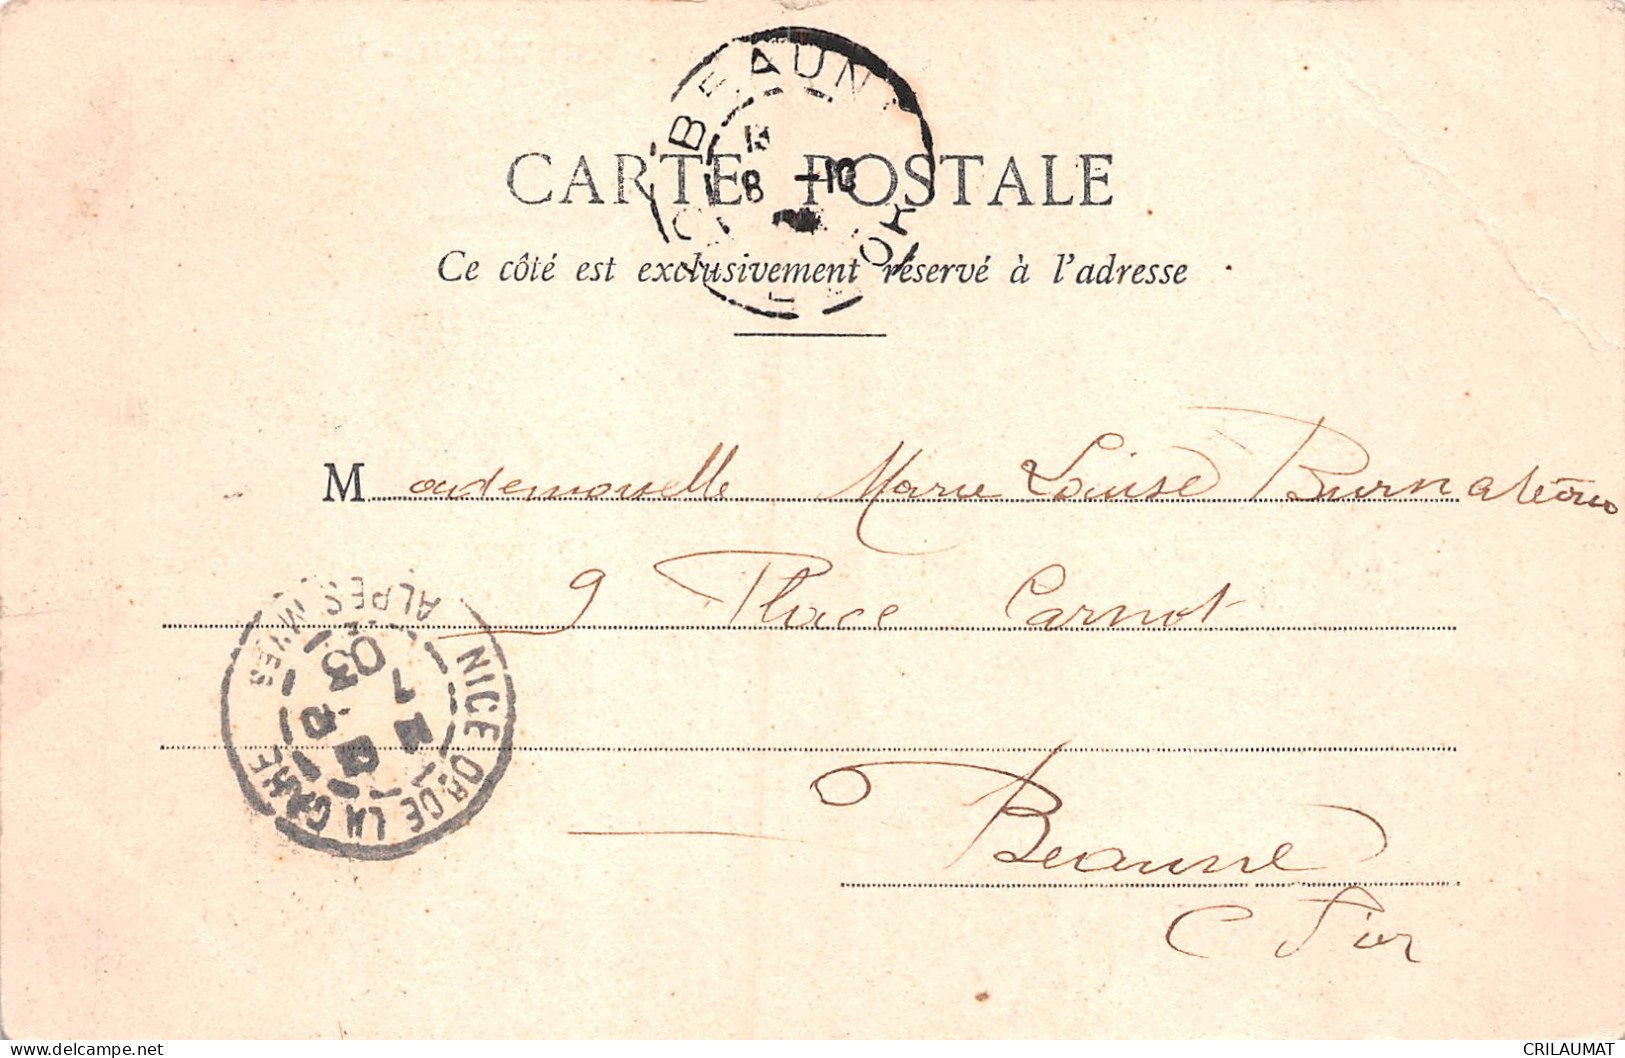 BEAUNE
8 -10
OR
CARTE POSTALE
Ce côté est exclusivement réservé à l'adresse
Mademoiselle Marie Louise
9 Place Carnot
Beaune
C d'or
NICE OR DE LA GARE
ALPES MMES
03
CRILAUMAT